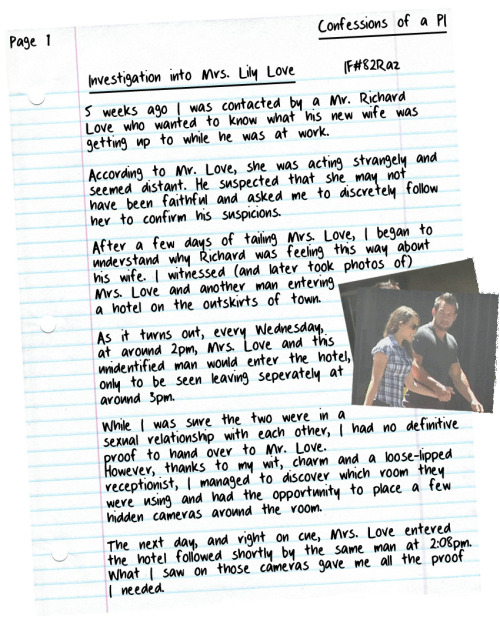 Confessions of a PI
Page 1
Investigation into Mrs. Lily Love
IF#82Raz
5 weeks ago I was contacted by a Mr. Richard
Love who wanted to know what his new wife was
getting up to while he was at work.
According to Mr. Love, she was acting strangely and
seemed distant. He suspected that she may not
have been faithful and asked me to discretely follow
her to confirm his suspicions.
After a few days of tailing Mrs. Love, I began to
understand why Richard was feeling this way about
his wife. I witnessed (and later took photos of)
Mrs. Love and another man entering
a hotel on the outskirts of town.
As it turns out, every Wednesday,
at around 2pm, Mrs. Love and this
unidentified man would enter the hotel,
only to be seen leaving seperately at
around 3pm.
While I was sure the two were in a
sexual relationship with each other, I had no definitive
proof to hand over to Mr. Love.
However, thanks to my wit, charm and a loose-lipped
receptionist, I managed to discover which room they
were using and had the opportunity to place a few
hidden cameras around the room.
The next day, and right on cue, Mrs. Love entered
the hotel followed shortly by the same man at 2:08pm.
What I saw on those cameras gave me all the proof
I needed.